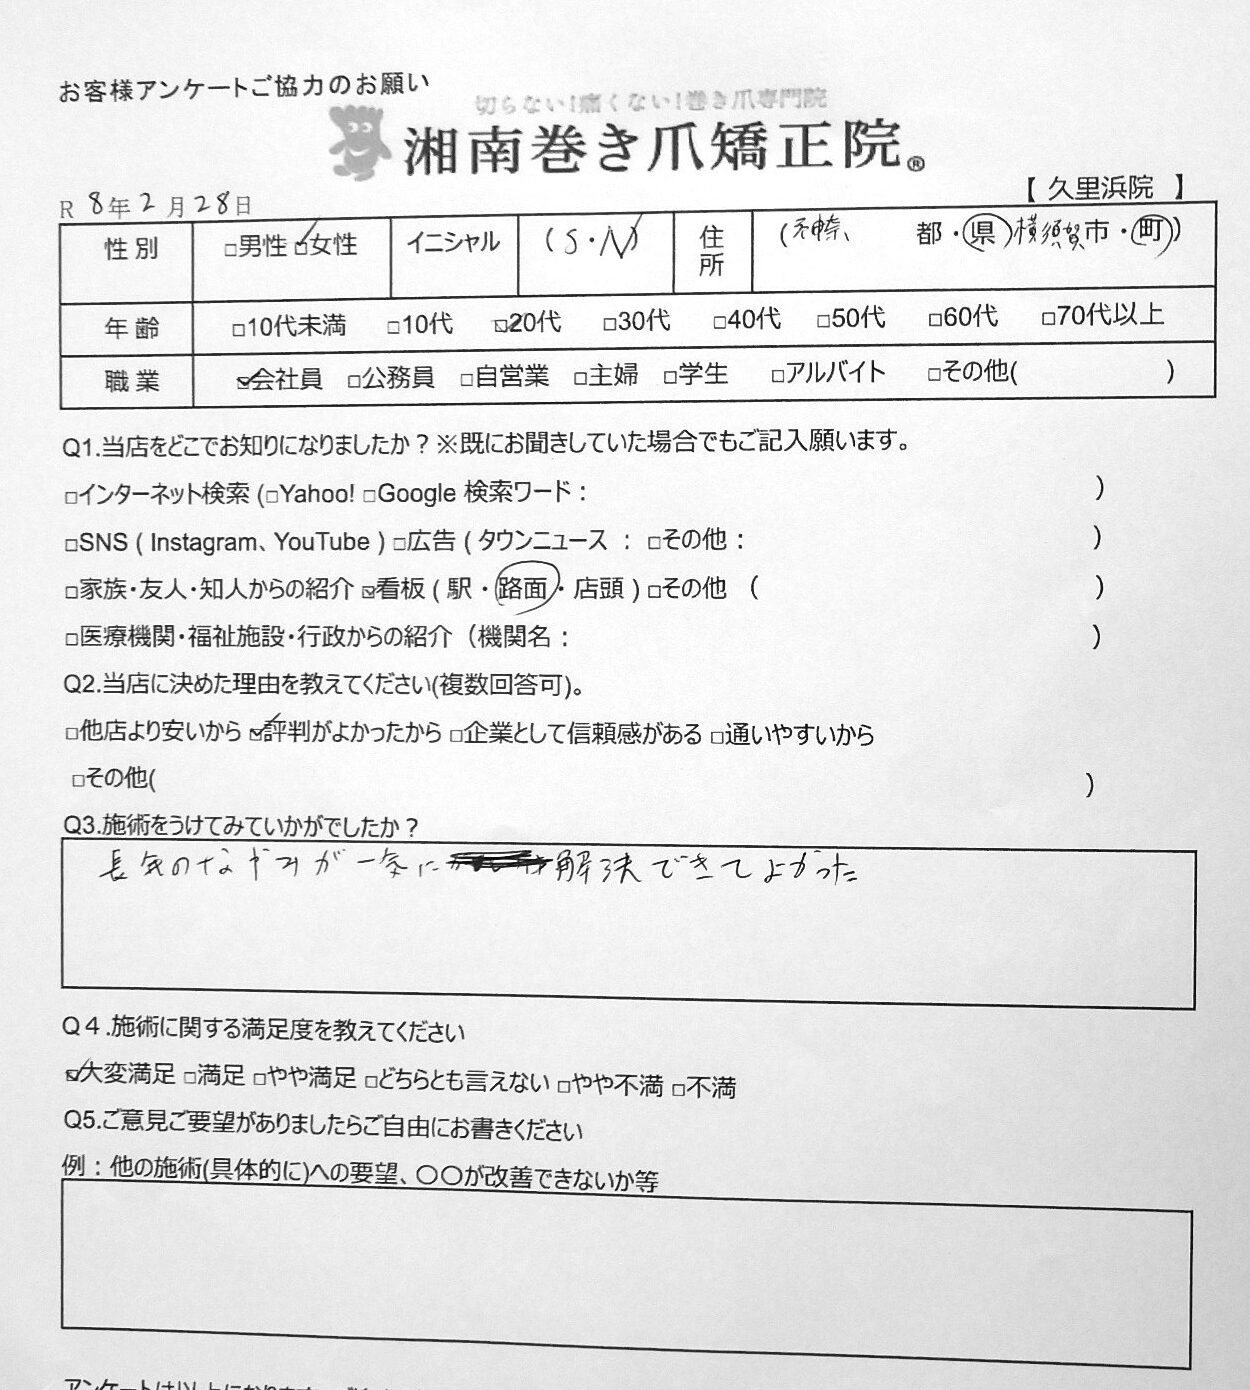 お客様アンケートご協力のお願い
切らない!痛くない!巻き爪専門院
湘南巻き爪矯正院®
【 久里浜院 】
R 8年2月28日
性別 □男性 ☑女性 イニシャル (S・N) 住所 (神奈、 都・県 横須賀市・町)
年齢 □10代未満 □10代 ☑20代 □30代 □40代 □50代 □60代 □70代以上
職業 ☑会社員 □公務員 □自営業 □主婦 □学生 □アルバイト □その他( )
Q1.当店をどこでお知りになりましたか?※既にお聞きしていた場合でもご記入願います。
□インターネット検索 (□Yahoo! □Google 検索ワード: )
□SNS ( Instagram、YouTube ) □広告 ( タウンニュース : □その他: )
□家族・友人・知人からの紹介 ☑看板 ( 駅・路面・店頭 ) □その他 ( )
□医療機関・福祉施設・行政からの紹介 (機関名: )
Q2.当店に決めた理由を教えてください(複数回答可)。
□他店より安いから ☑評判がよかったから □企業として信頼感がある □通いやすいから
□その他( )
Q3.施術をうけてみていかがでしたか?
長年のなやみが一気に解決できてよかった
Q4.施術に関する満足度を教えてください
☑大変満足 □満足 □やや満足 □どちらとも言えない □やや不満 □不満
Q5.ご意見ご要望がありましたらご自由にお書きください
例:他の施術(具体的に)への要望、〇〇が改善できないか等